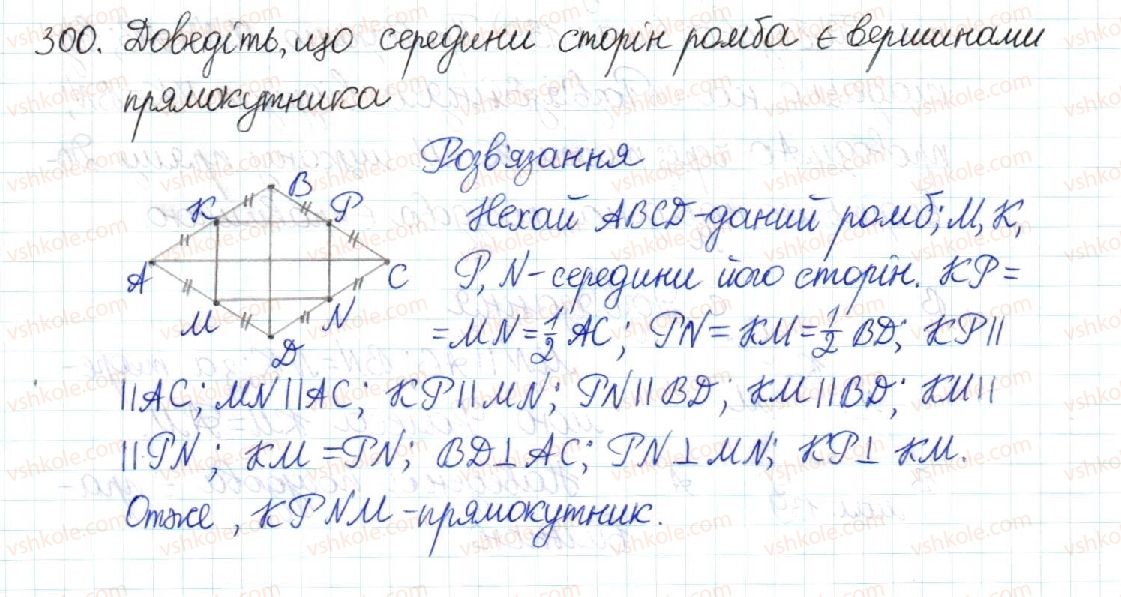 300. Доведіть, що середини сторін ромба є вершинами
прямокутника
Розв'язання
B
K P
A C
M N
D
Нехай ABCD-даний ромб; M, K,
P, N-середини його сторін. KP=
=MN=1/2 AC; PN=KM=1/2 BD; KP||
||AC; MN||AC; KP||MN; PN||BD; KM||BD; KM||
||PN; KM=PN; BD⊥AC; PN⊥MN; KP⊥KM.
Отже, KPNM-прямокутник.